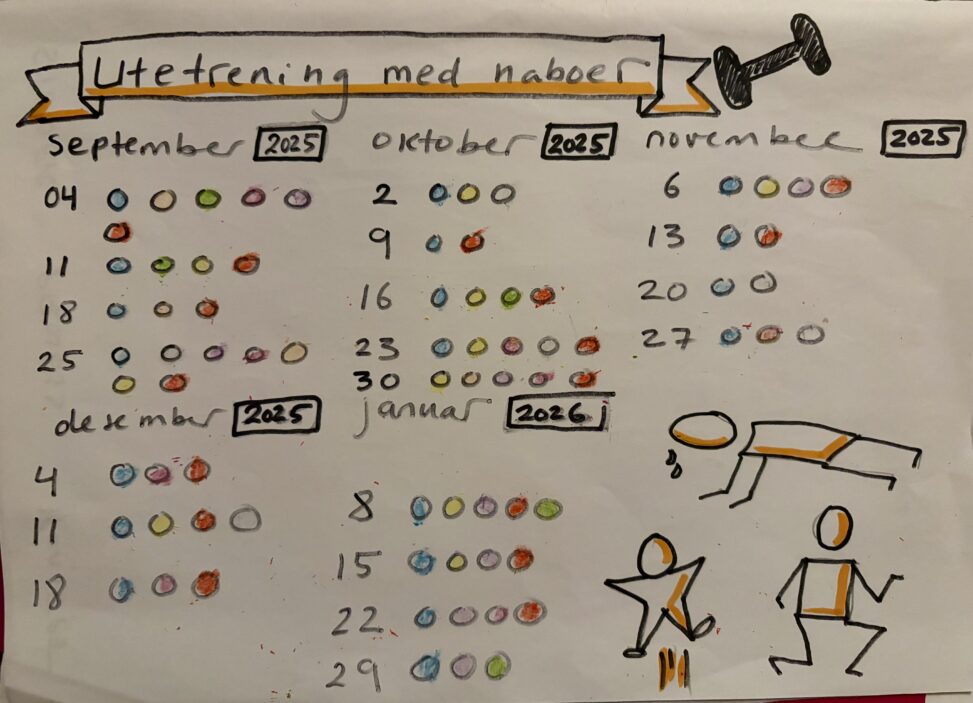 Utetrening med naboer
september 2025
04
11
18
25
oktober 2025
2
9
16
23
30
november 2025
6
13
20
27
desember 2025
4
11
18
januar 2026
8
15
22
29